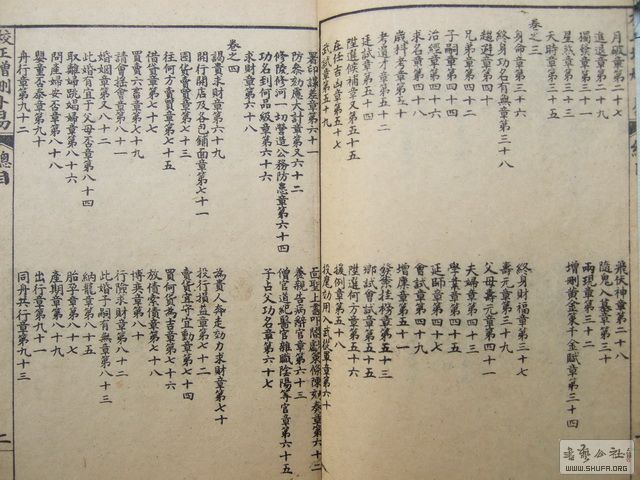 月破章第二十七
飛伏神章第二十八
進退章第二十九
隨鬼入墓章第三十
獨發章第三十一
兩現章第三十二
星煞章第三十三
增刪黃金策千金賦章第三十四
天時章第三十五
卷之三
身命章第三十六
終身財福章第三十七
終身功名有無章第三十八
壽元章第三十九
趨避章第四十
父母壽元章第四十一
兄弟章第四十二
夫婦章第四十三
子嗣章第四十四
學業章第四十五
治經章第四十六
延師章第四十七
求名章第四十八
會試章第四十九
歲科考章第五十
增廩章第五十一
考遺才章第五十二
發案掛榜章第五十三
廷試章第五十四
鄉試會試章第五十五
陞選候補章又第五十五
陞選何方章第五十五
在任吉凶章第五十七
後例章第五十八
武試章第五十九
投麾効用入武從軍章第六十
署印謀差章第六十一
面聖上書叩閽獻策條陳劾奏章第六十二
防叅劾慮大計章第又六十二
養親告病辭官章第六十三
修陵修河一切營造公務防患章第六十四
僧官道紀醫官雜職陰陽等官章第六十五
功名到何品級章第六十六
子占父功名章第六十七
求財章第六十八
卷之四
謁貴求財章第六十九
為貴人奔走効力求財章第七十
開行開店及各色鋪面章第七十一
投行損益章第七十二
囤貨賣貨章第七十三
賣貨宜守宜動章第七十四
往何方賣買章第七十五
買何貨為吉章第七十六
借貸章第七十七
放債索債章第七十八
買賣六畜章第七十九
博奕章第八十
請會搖會章第八十一
行險求財章第八十二
婚姻章第八十二
此婚子嗣有無章第八十三
此婚有宜于父母否章第八十四
納寵章第八十五
取離婦跳娼婦章第八十六
胎孕章第八十七
問產婦安否章第八十八
產期章第八十九
嬰童否泰章第九十
出行章第九十一
舟行章第九十二
同舟共行章第九十三
校正增刪卜易
總目
二
書法公社
WWW.SHUFA.ORG